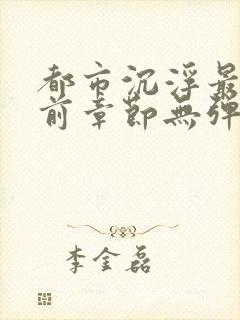 都市沉浮最
前章節無彈
李金磊